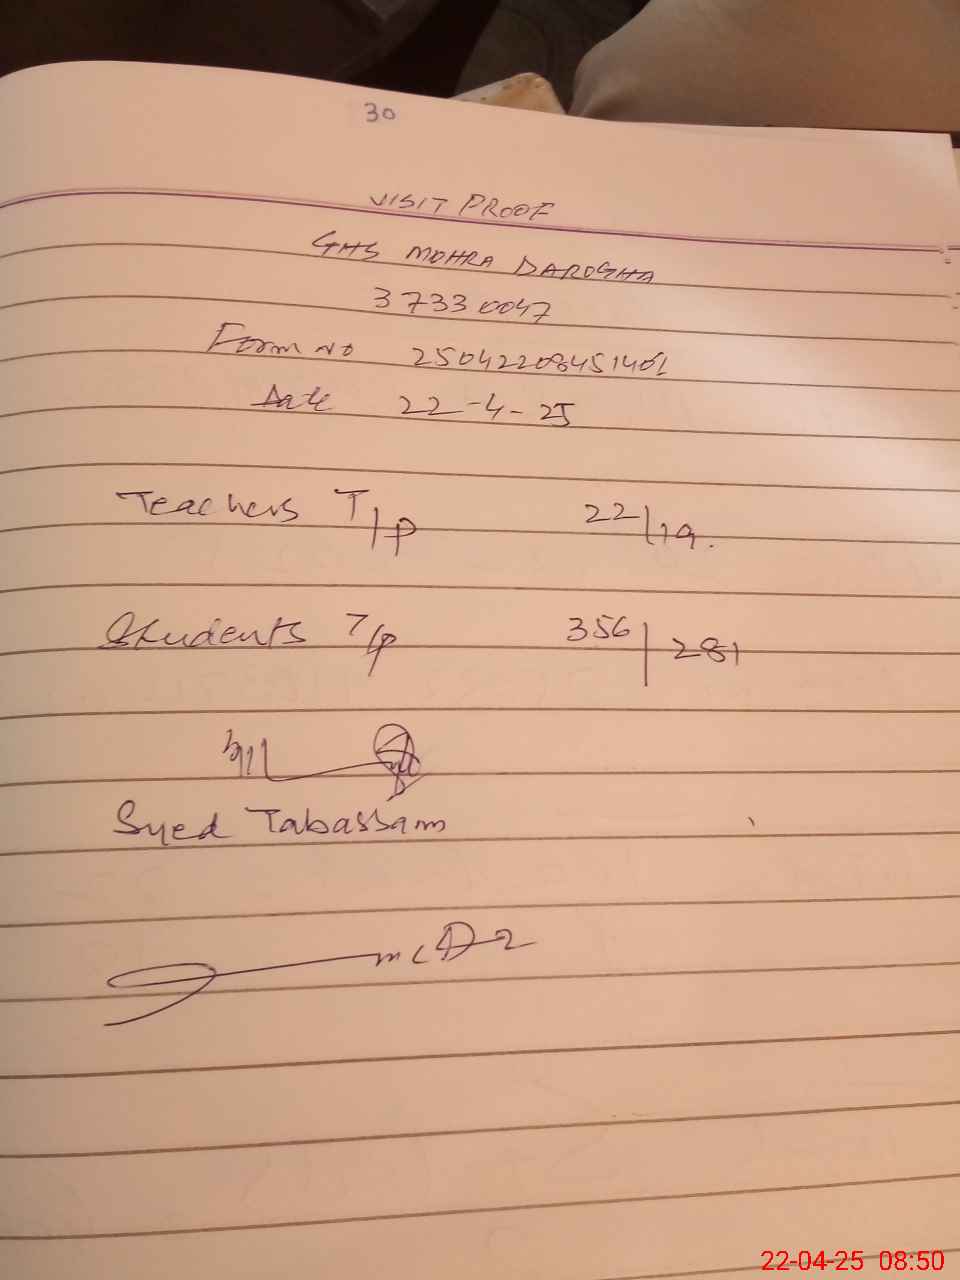 30
VISIT PROOF
GHS MOHRA DAROGHA
37330047
Form No 25042208451401
Date 22-4-25
Teachers T/P 22/19.
Students T/P 356/281
Syed Tabassam
22-04-25 08:50